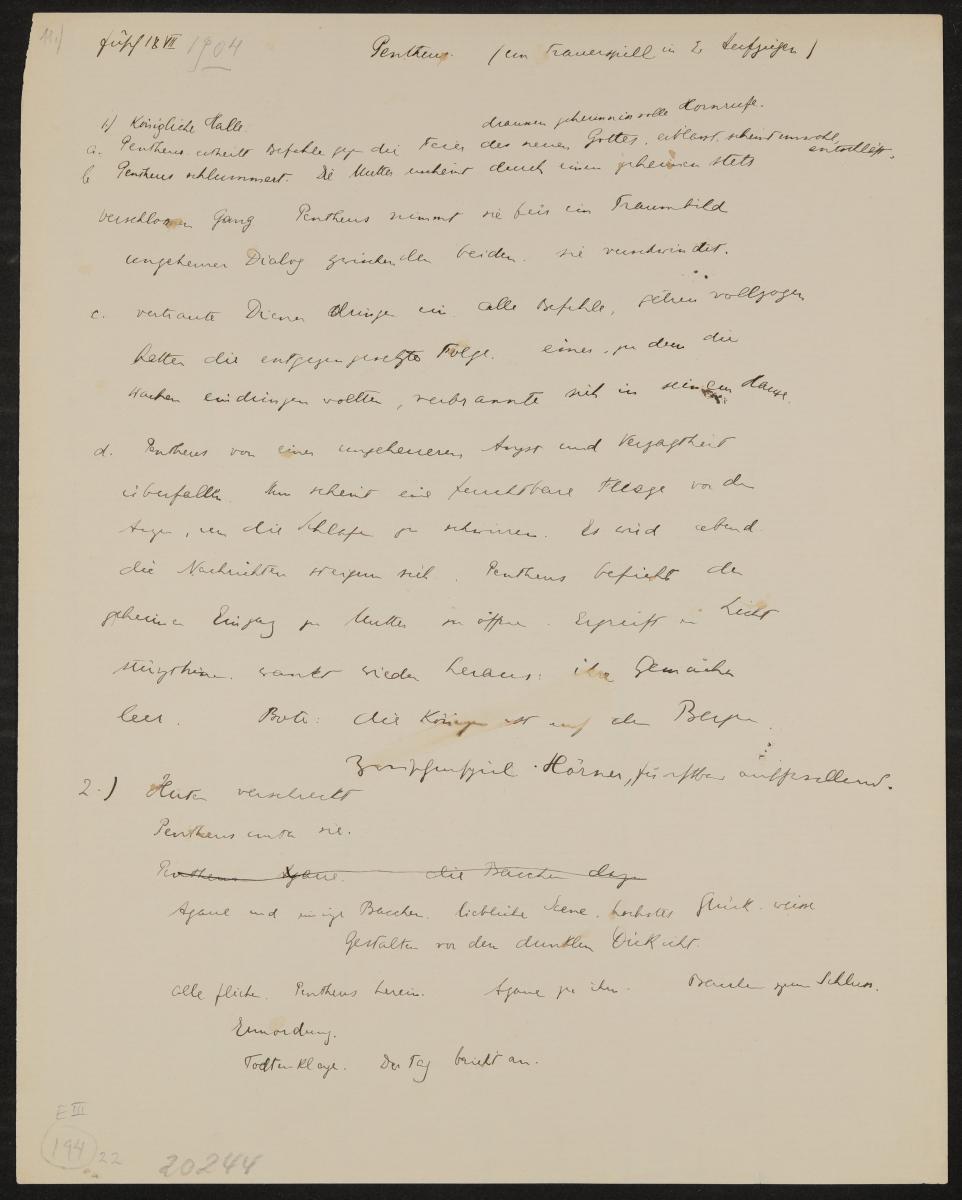 11.)
Fusch 18 VII 1904
Pentheus. (ein Trauerspiell in 2 Aufzügen)
1) Königliche Halle.
draussen geheimnisvolle Hornrufe.
a. Pentheus ertheilt Befehle gegen die Feier des neuen Gottes, erblasst, scheint umsohl entschläft.
b Pentheus schlummert. Die Mutter erscheint durch einen geheimen stets
verschlossnen Gang Pentheus nimmt sie für ein Traumbild
ungeheurer Dialog zwischen den beiden. sie verschwindet.
c. vertraute Diener dringen ein. alle Befehle, getreu vollzogen
hatten die entgegengesetzte Folge. einer, zu dem die
Wachen eindringen wollten, verbrannte sich in seinem Hause.
d. Pentheus von einer ungeheueren Angst und Verzagtheit
überfallen. Ihm scheint eine furchtbare Fliege vor den
Augen, um die Schlafen zu schwirren. Es wird abend
die Nachrichten steigern sich. Pentheus befiehlt den
geheimen Eingang zur Mutter zu öffnen. Ergreift ein Licht
stürzt hinein. wankt wieder heraus: ihre Gemächer
leer. Bote: die Königin ist auf den Bergen.
Zwischenspiel. Hörner, furchtbar anschwellend.
2.) Hirten verschreckt
Pentheus unter sie.
Pentheus Agaue. die Bacchen dazu
Agaue und einige Bacchen. liebliche Scene. höchstes Glück. weisse
Gestalten vor dem dunklen Dickicht.
alle fliehen. Pentheus herein. Agaue zu ihm. Bacchen zum Schluss.
Ermordung.
Todtenklage. Der Tag bricht an.
E III
194 22
20244